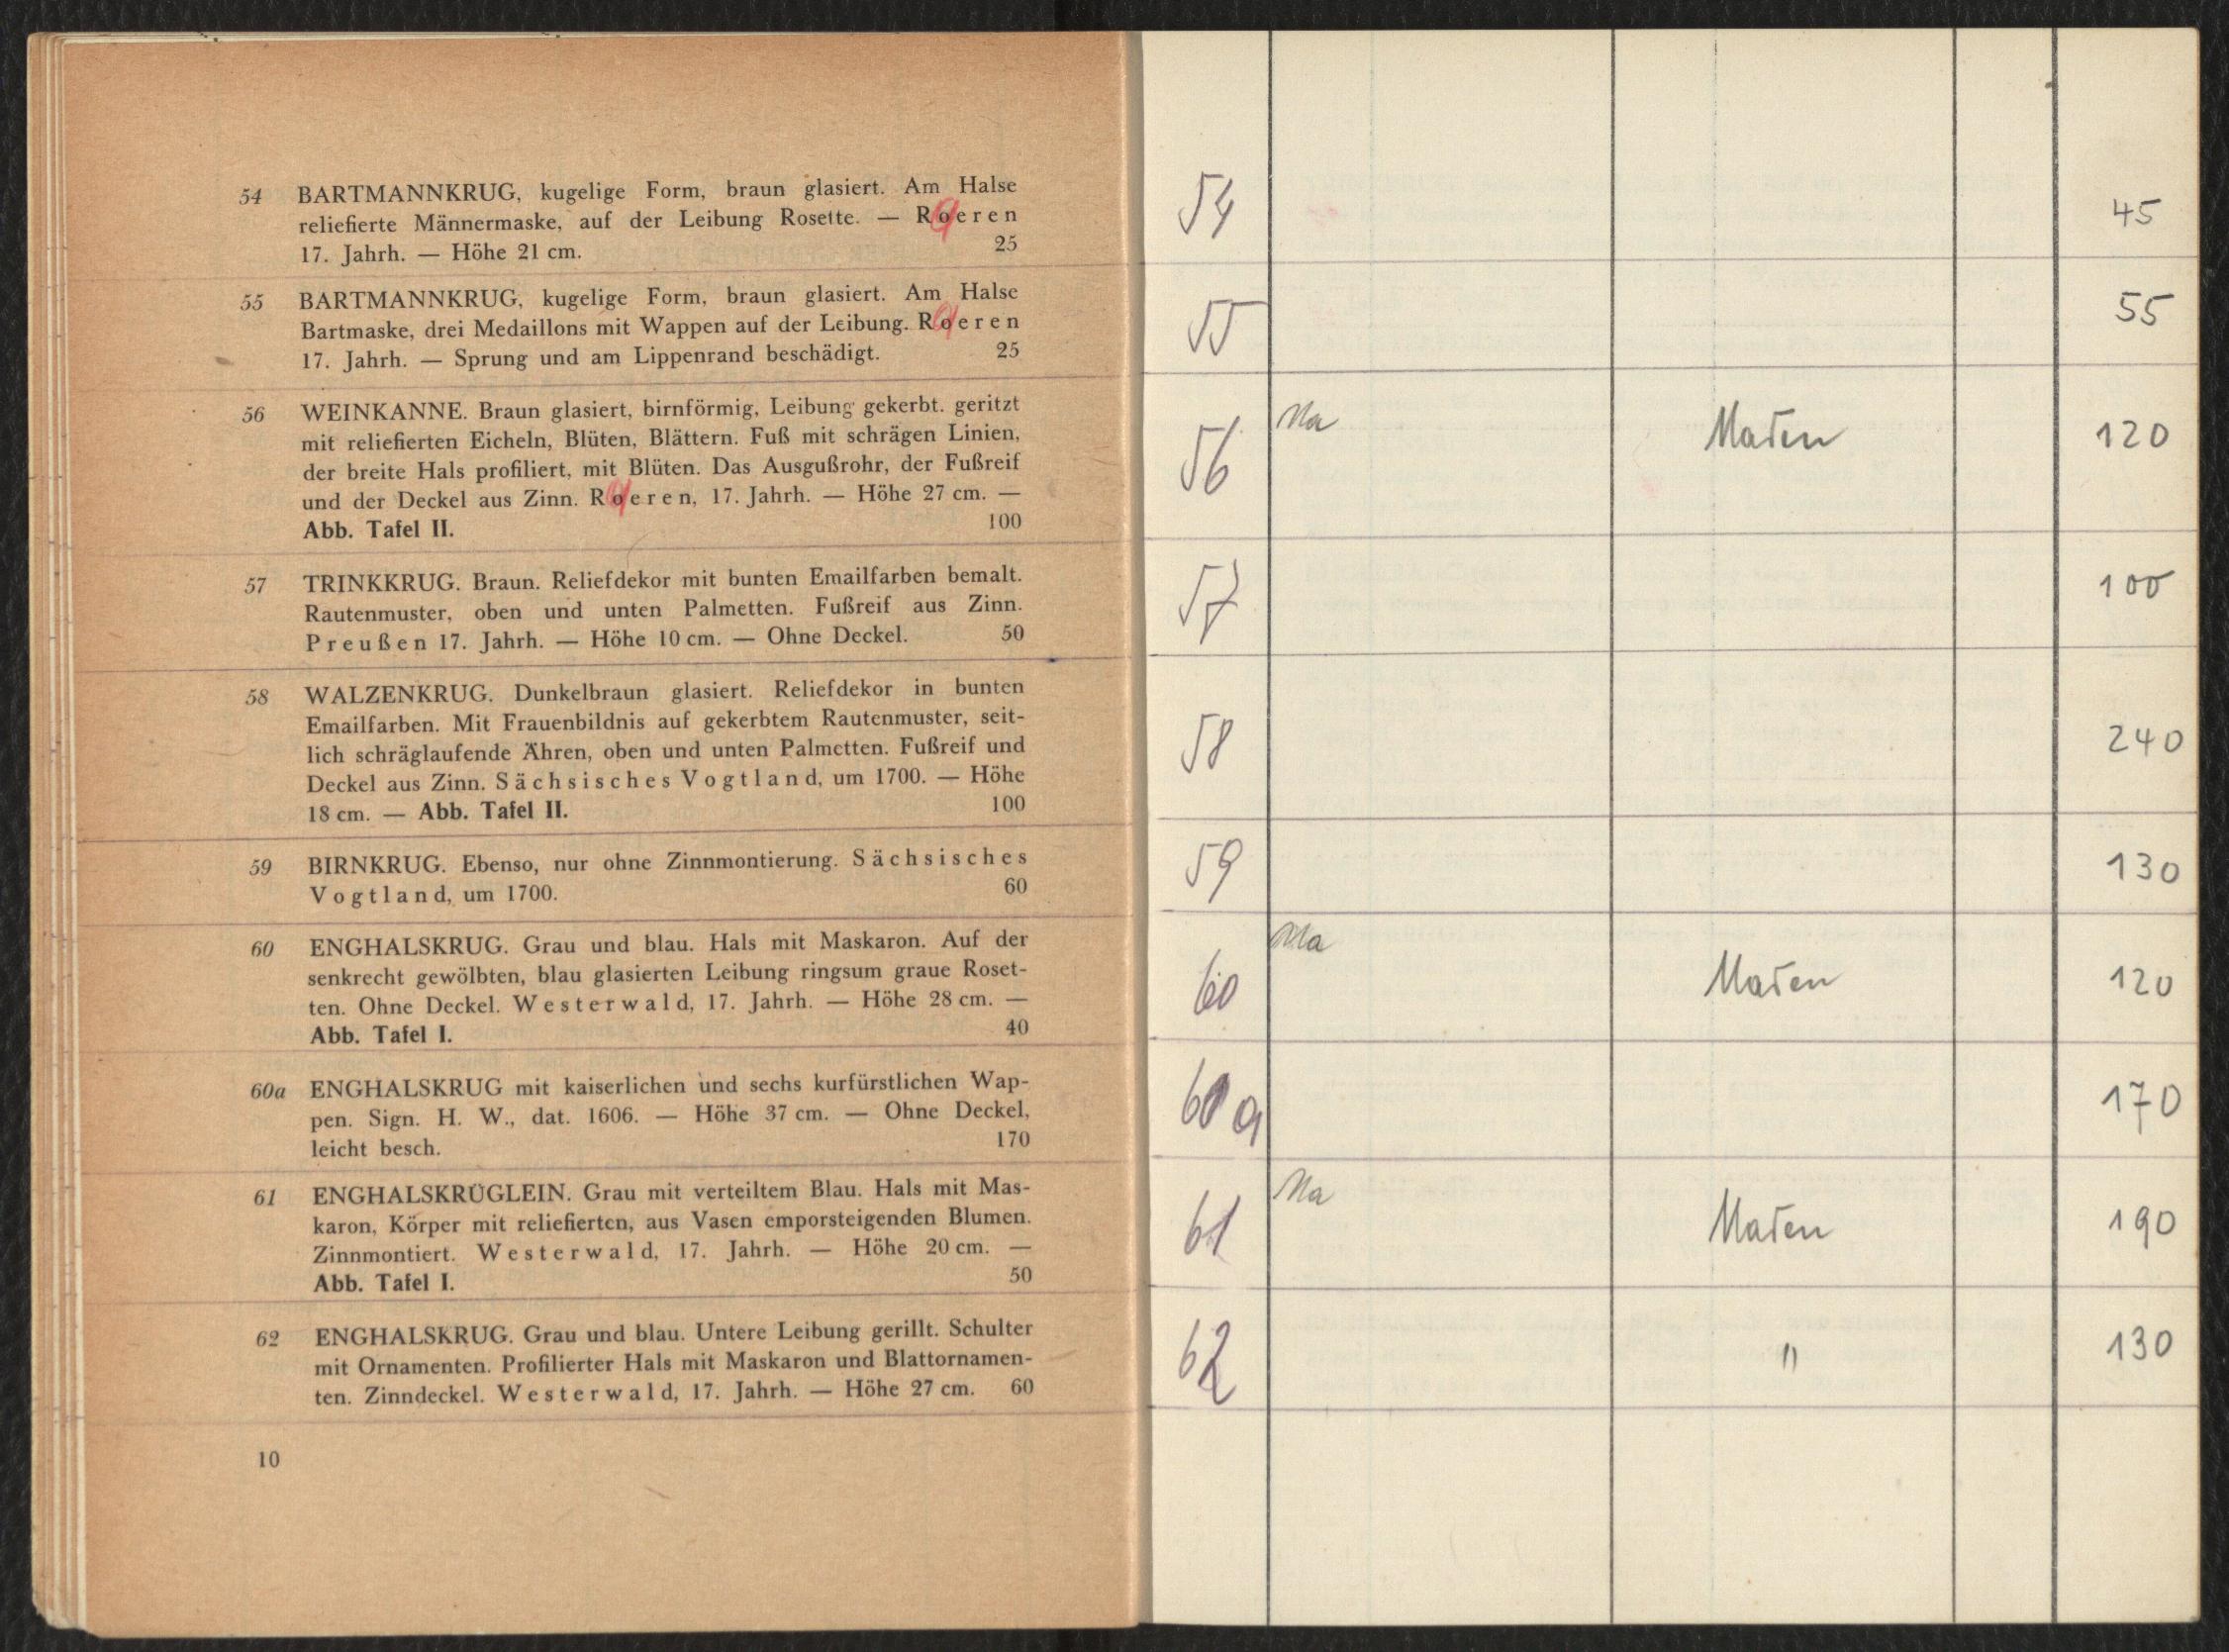 54 BARTMANNKRUG, kugelige Form, braun glasiert. Am Halse
reliefierte Männermaske, auf der Leibung Rosette. — Roeren
17. Jahrh. — Höhe 21 cm. 25
55 BARTMANNKRUG, kugelige Form, braun glasiert. Am Halse
Bartmaske, drei Medaillons mit Wappen auf der Leibung. Roeren
17. Jahrh. — Sprung und am Lippenrand beschädigt. 25
56 WEINKANNE. Braun glasiert, birnförmig, Leibung gekerbt. geritzt
mit reliefierten Eicheln, Blüten, Blättern. Fuß mit schrägen Linien,
der breite Hals profiliert, mit Blüten. Das Ausgußrohr, der Fußreif
und der Deckel aus Zinn. Roeren, 17. Jahrh. — Höhe 27 cm. —
Abb. Tafel II. 100
57 TRINKKRUG. Braun. Reliefdekor mit bunten Emailfarben bemalt.
Rautenmuster, oben und unten Palmetten. Fußreif aus Zinn.
Preußen 17. Jahrh. — Höhe 10 cm. — Ohne Deckel. 50
58 WALZENKRUG. Dunkelbraun glasiert. Reliefdekor in bunten
Emailfarben. Mit Frauenbildnis auf gekerbtem Rautenmuster, seit-
lich schräglaufende Ähren, oben und unten Palmetten. Fußreif und
Deckel aus Zinn. Sächsisches Vogtland, um 1700. — Höhe
18 cm. — Abb. Tafel II. 100
59 BIRNKRUG. Ebenso, nur ohne Zinnmontierung. Sächsisches
Vogtland, um 1700. 60
60 ENGHALSKRUG. Grau und blau. Hals mit Maskaron. Auf der
senkrecht gewölbten, blau glasierten Leibung ringsum graue Roset-
ten. Ohne Deckel. Westerwald, 17. Jahrh. — Höhe 28 cm. —
Abb. Tafel I. 40
60a ENGHALSKRUG mit kaiserlichen und sechs kurfürstlichen Wap-
pen. Sign. H. W., dat. 1606. — Höhe 37 cm. — Ohne Deckel,
leicht besch. 170
61 ENGHALSKRÜGLEIN. Grau mit verteiltem Blau. Hals mit Mas-
karon, Körper mit reliefierten, aus Vasen emporsteigenden Blumen.
Zinnmontiert. Westerwald, 17. Jahrh. — Höhe 20 cm. —
Abb. Tafel I. 50
62 ENGHALSKRUG. Grau und blau. Untere Leibung gerillt. Schulter
mit Ornamenten. Profilierter Hals mit Maskaron und Blattornamen-
ten. Zinndeckel. Westerwald, 17. Jahrh. — Höhe 27 cm. 60
10
54 45
55 55
56 Ma Maten 120
57 100
58 240
59 130
60 Ma Maten 120
60a 170
61 Ma Maten 190
62 " 130